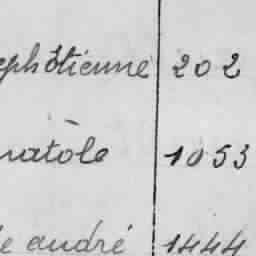 eph Étienne 202
natole 1053
ie andré 1444